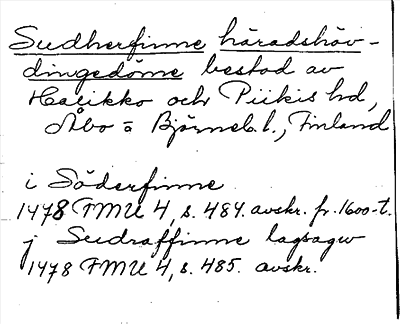 Sudherfinne häradshöv-
dingedöme bestod av
Halikko och Piikis hd,
Åbo = Björneb. l., Finland
i Söderfinne
1478 FMU 4, s. 484. avskr. fr. 1600-t.
j Sudraffinne lagsagw
1478 FMU 4, s. 485. avskr.